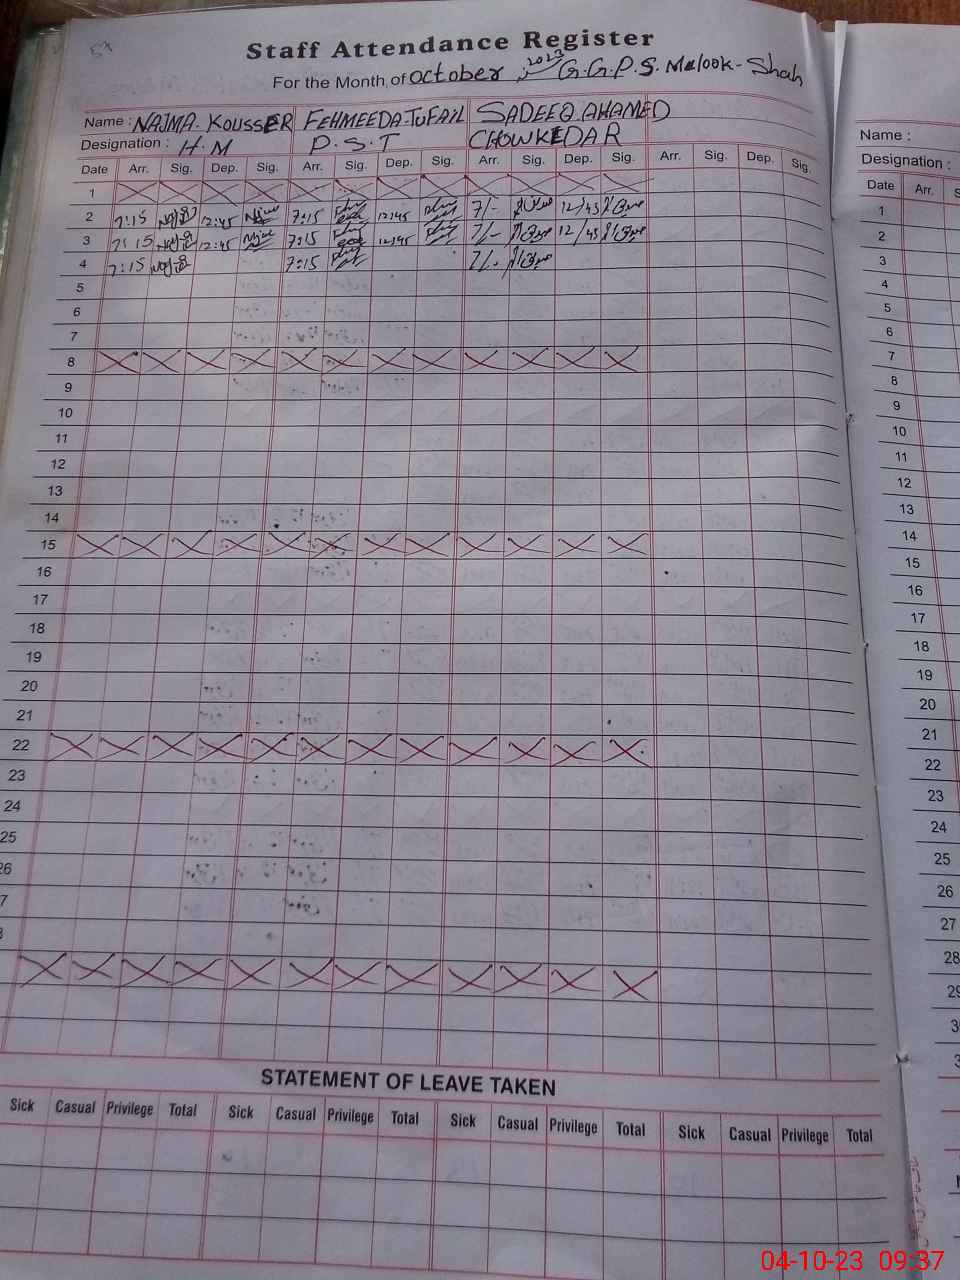 Staff Attendance Register
For the Month of October 2023 G.G.P.S. Melook-Shah
Name : NAJMA-KOUSSER FEHMEEDA-TUFAIL SADEEQ AHAMED
Designation : H.M P.S.T CHOWKEDAR
Date Arr. Sig. Dep. Sig. Arr. Sig. Dep. Sig. Arr. Sig. Dep. Sig. Arr. Sig. Dep. Sig.
1
2 7:15 12:45 7:15 12:45 7/- 12/45
3 7:15 12:45 7:15 12:45 7/- 12/45
4 7:15 7:15 7/-
5
6
7
8
9
10
11
12
13
14
15
16
17
18
19
20
21
22
23
24
25
26
7
STATEMENT OF LEAVE TAKEN
Sick Casual Privilege Total Sick Casual Privilege Total Sick Casual Privilege Total Sick Casual Privilege Total
Name :
Designation :
Date Arr.
1
2
3
4
5
6
7
8
9
10
11
12
13
14
15
16
17
18
19
20
21
22
23
24
25
26
27
28
29
3
3
04-10-23 09:37